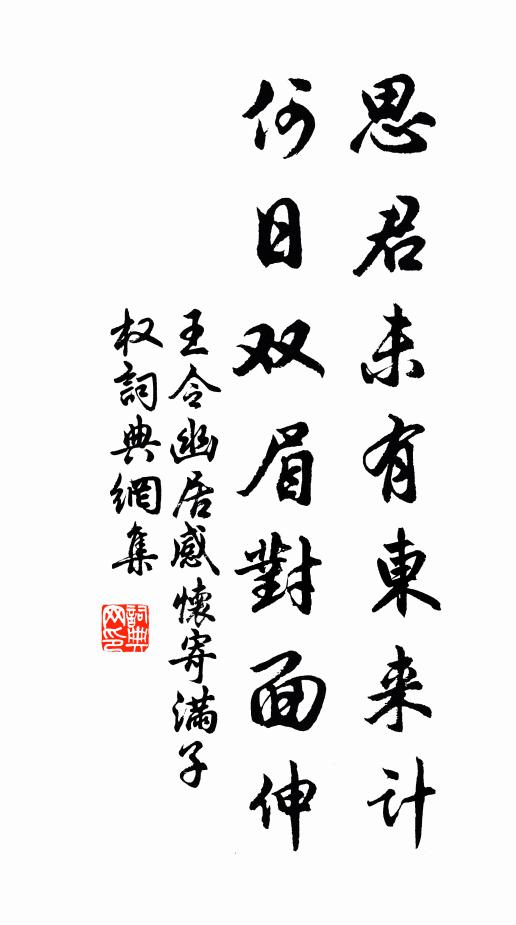 思君未有東来计
何日双眉對面伸
王令幽居感懷寄满子
权詞典網集
詞典网印